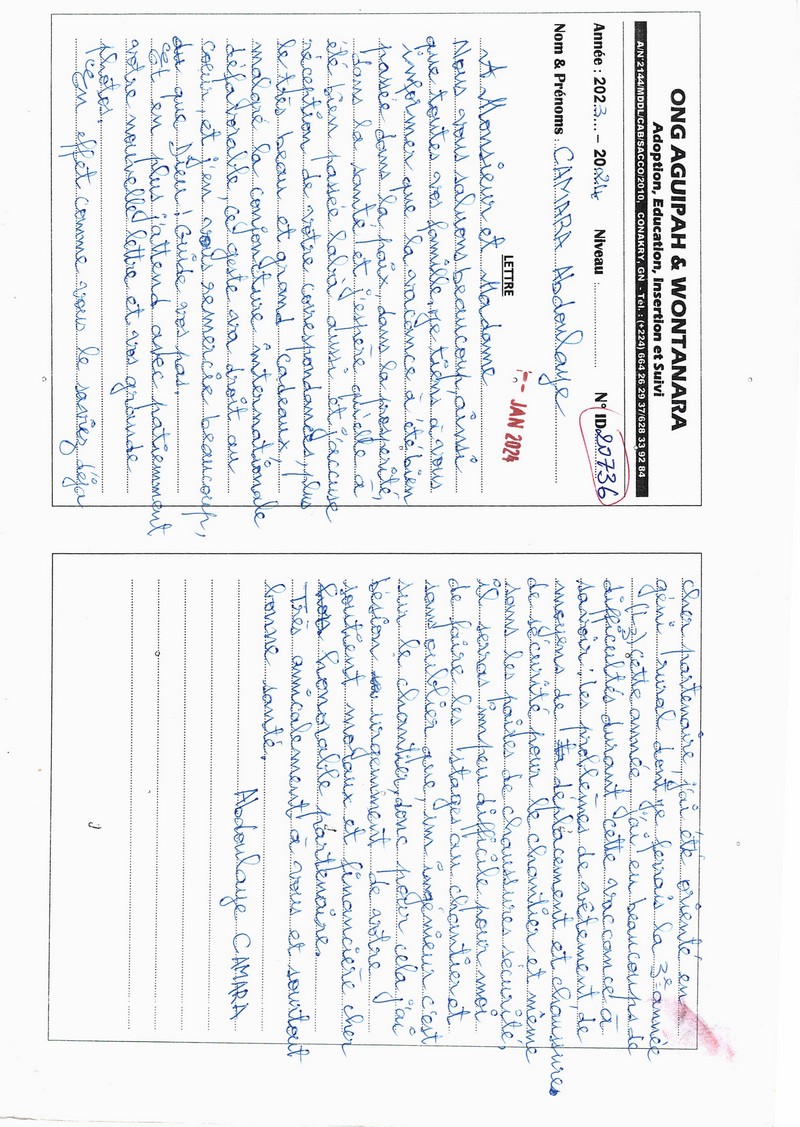 ONG AGUIPAH & WONTANARA
Adoption, Education, Insertion et Suivi
A/N°2144/MDDL/CAB/SACCO/2010, CONAKRY, GN - Tél. : (+224) 664 26 29 37/628 33 92 84
Année : 2023... - 2024 Niveau ............ N° ID 20736
Nom & Prénoms : CAMARA Abdoulaye
LETTRE
JAN 2024
A Monsieur et Madame
Nous vous saluons beaucoup, ainsi
que toutes vos famille, je tiens à vous
informer que la vacance à été bien
passée dans la paix, dans la prosperité,
dans la santé et j'espère qu'elle a
été bien passée labà aussi et j'accuse
réception de votre correspondandts, plus
le très beau et grand cadeaux,
malgré la conjoncture internationale
défavorable, ce geste va droit au
coeur, et j'en vous remercie beaucoup,
du que Dieu ! Guide vos pas.
Et en plus j'attend avec patiemment
votre nouvelle lettre et vos grande
photos.
En effet comme vous le saviez déjà
cher partenaire, j'ai été orienté en
géni rural dont je ferais la 3e année
(L3) cette année, j'ai eu beaucoups de
difficultés durant cette vaccance à
savoir : les problèmes de vêtement, de
moyens de déplacement et chaussures
de sécurité pour le chantier et même
sans les paires de chaussures sécurité,
il serras impeu difficile pour moi
de faire les stages au chantier et
sans oublier que, un ingénieur c'est
sur le chantier, donc pour cela j'ai
bésion urgemment de votre
soutient moraux et financière cher
honorable partenaire.
Très amicalement à vous et surtout
bonne santé.
Abdoulaye CAMARA